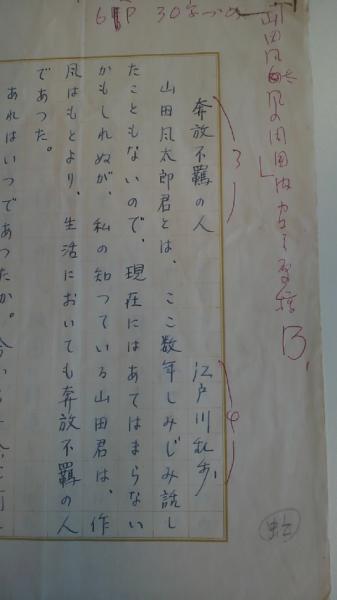 6 P 30字づめ
山田風
3
4
13
奔放不羈の人　江戸川乱歩
山田風太郎君とは、ここ数年しみじみ話し
たこともないので、現在にはあてはまらない
かもしれぬが、私の知つている山田君は、作
風はもとより、生活においても奔放不羈の人
であつた。
あれはいつであつたか。